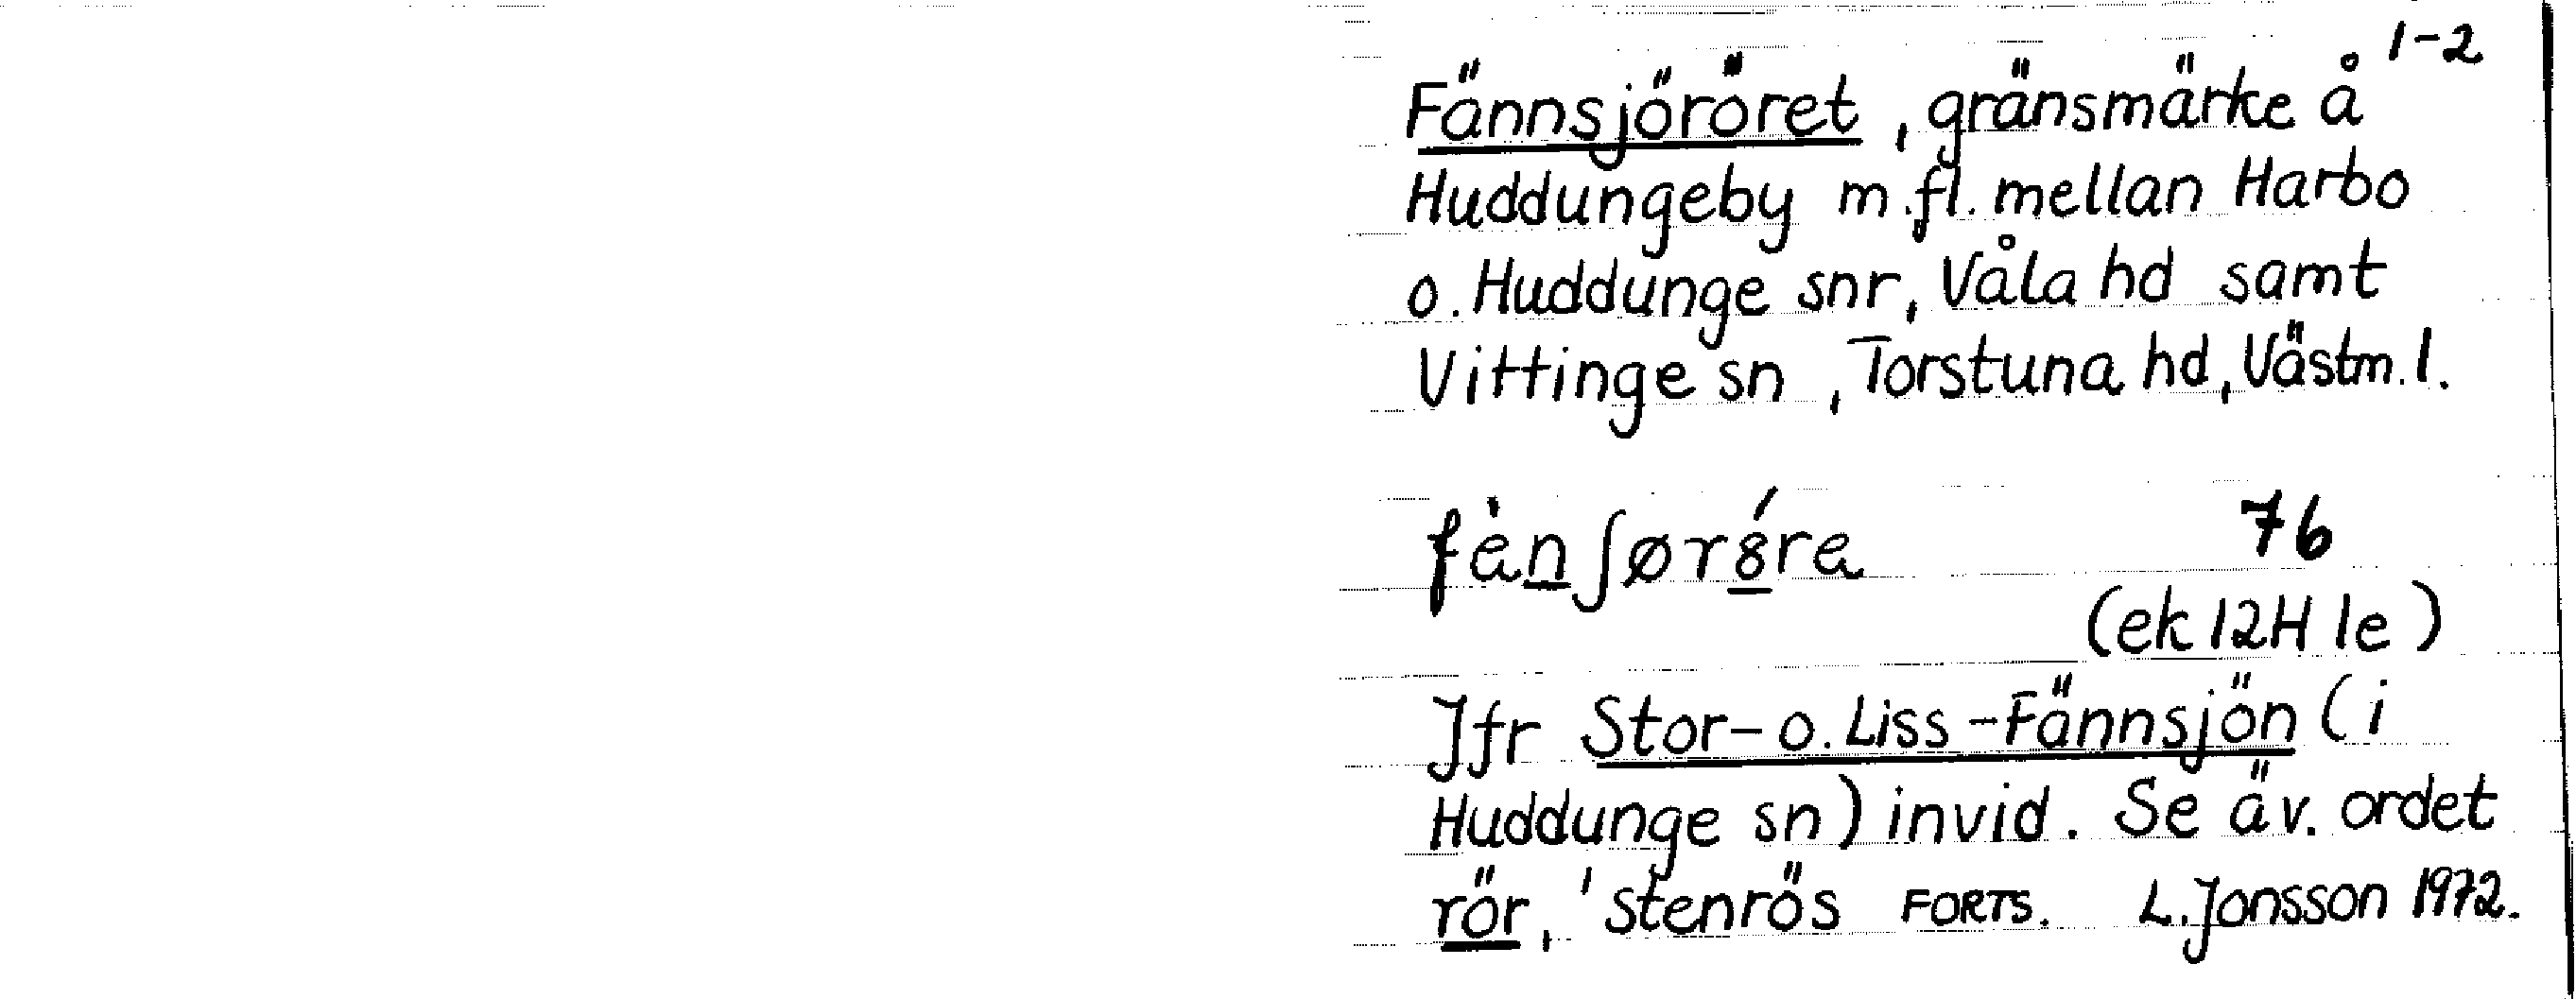 1-2
Fännsjöröret, gränsmärke å
Huddungeby m.fl. mellan Harbo
o. Huddunge snr, Våla hd samt
Vittinge sn, Torstuna hd, Västm. l.
76
(ek 12H 1e)
Jfr Stor- o. Liss-Fännsjön (i
Huddunge sn) invid. Se äv. ordet
rör, 'stenrös FORTS. L. Jonsson 1972.